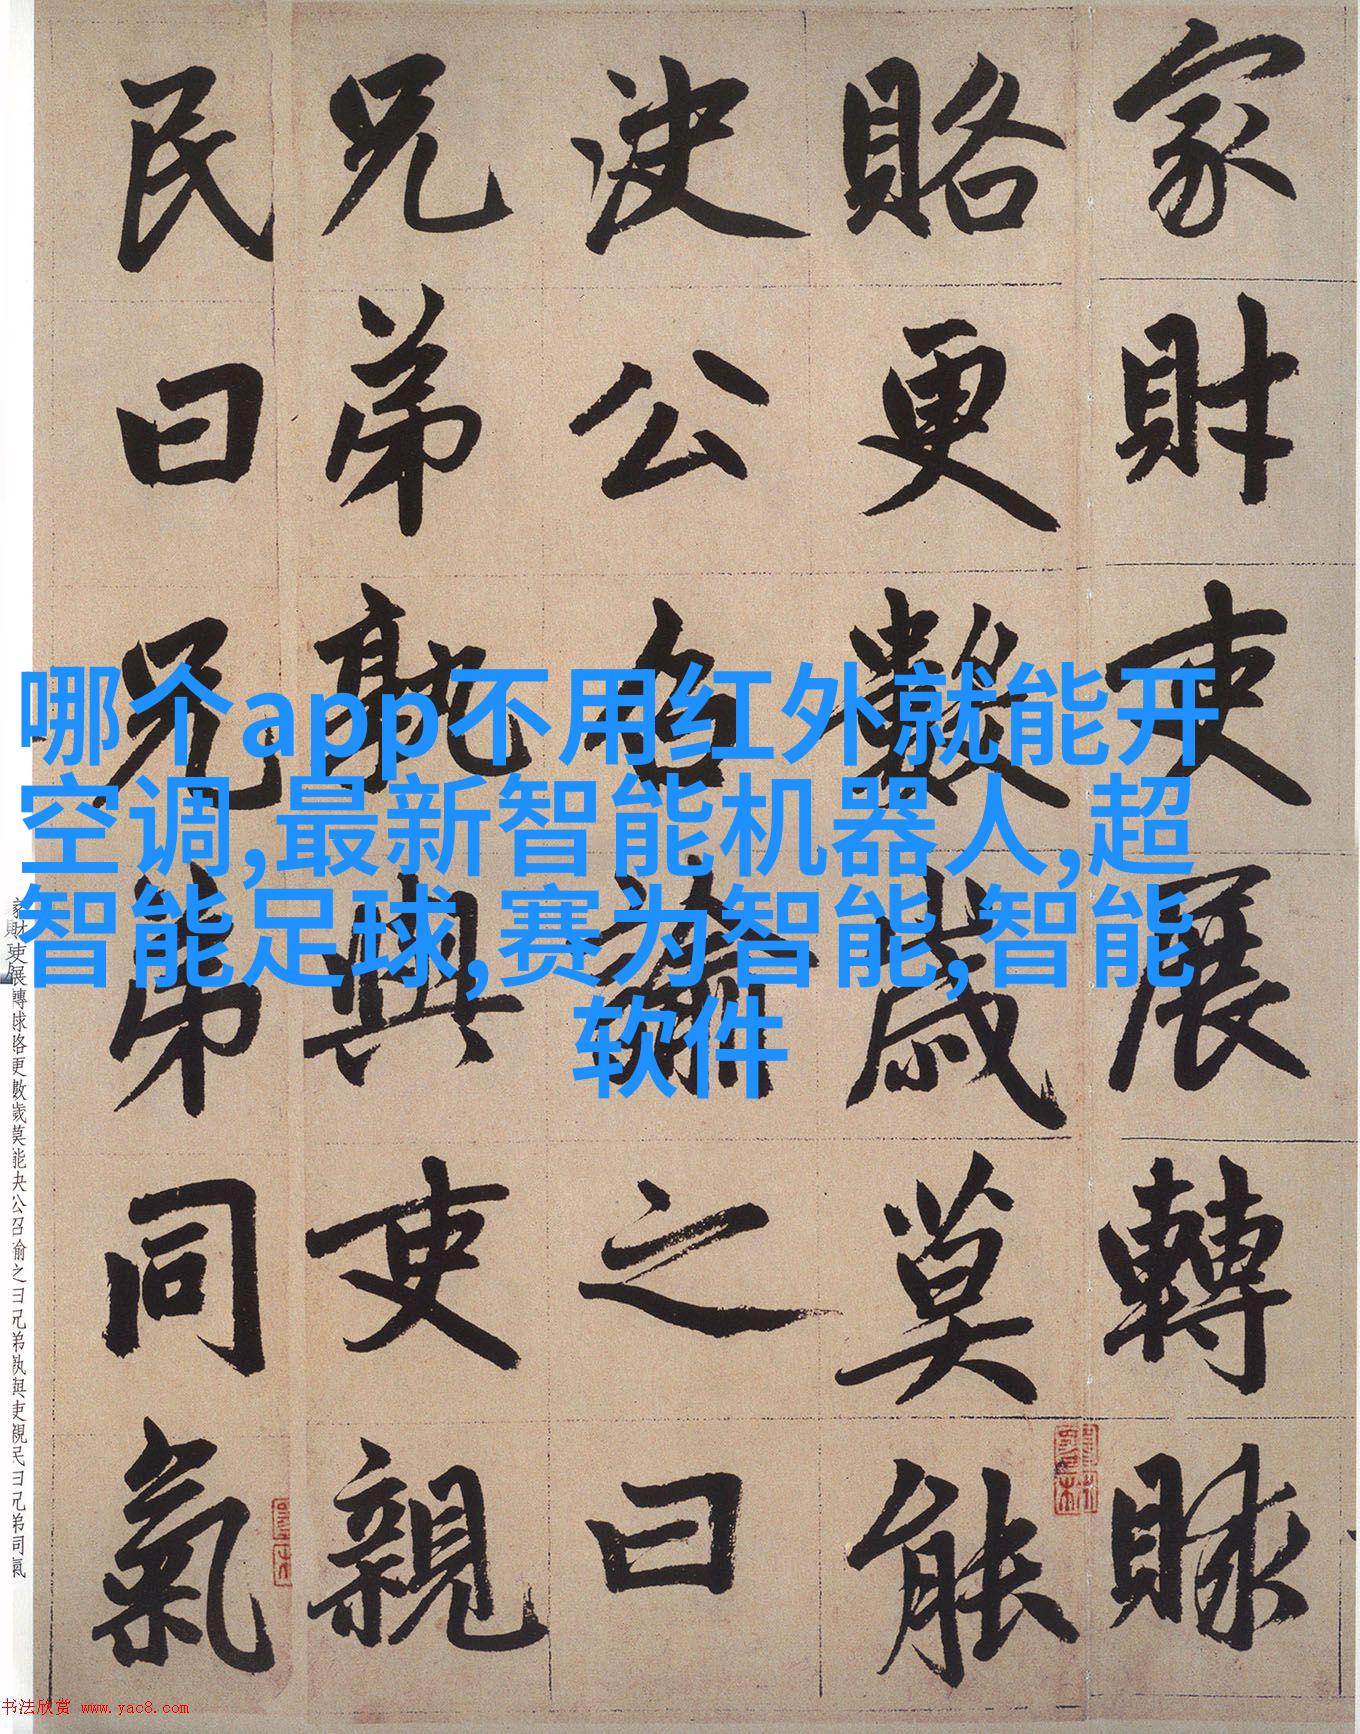 家財吏展轉賕
賂更數歲莫能
決公召諭之曰
兄弟孰與吏親
民曰兄弟同氣
哪个app不用红外就能开
空调,最新智能机器人,超
智能足球,赛为智能,智能
软件
家財吏展轉賕賂更數歲莫能决公召諭之曰兄弟孰與吏親民曰兄弟同氣
书法欣赏 www.yac8.com